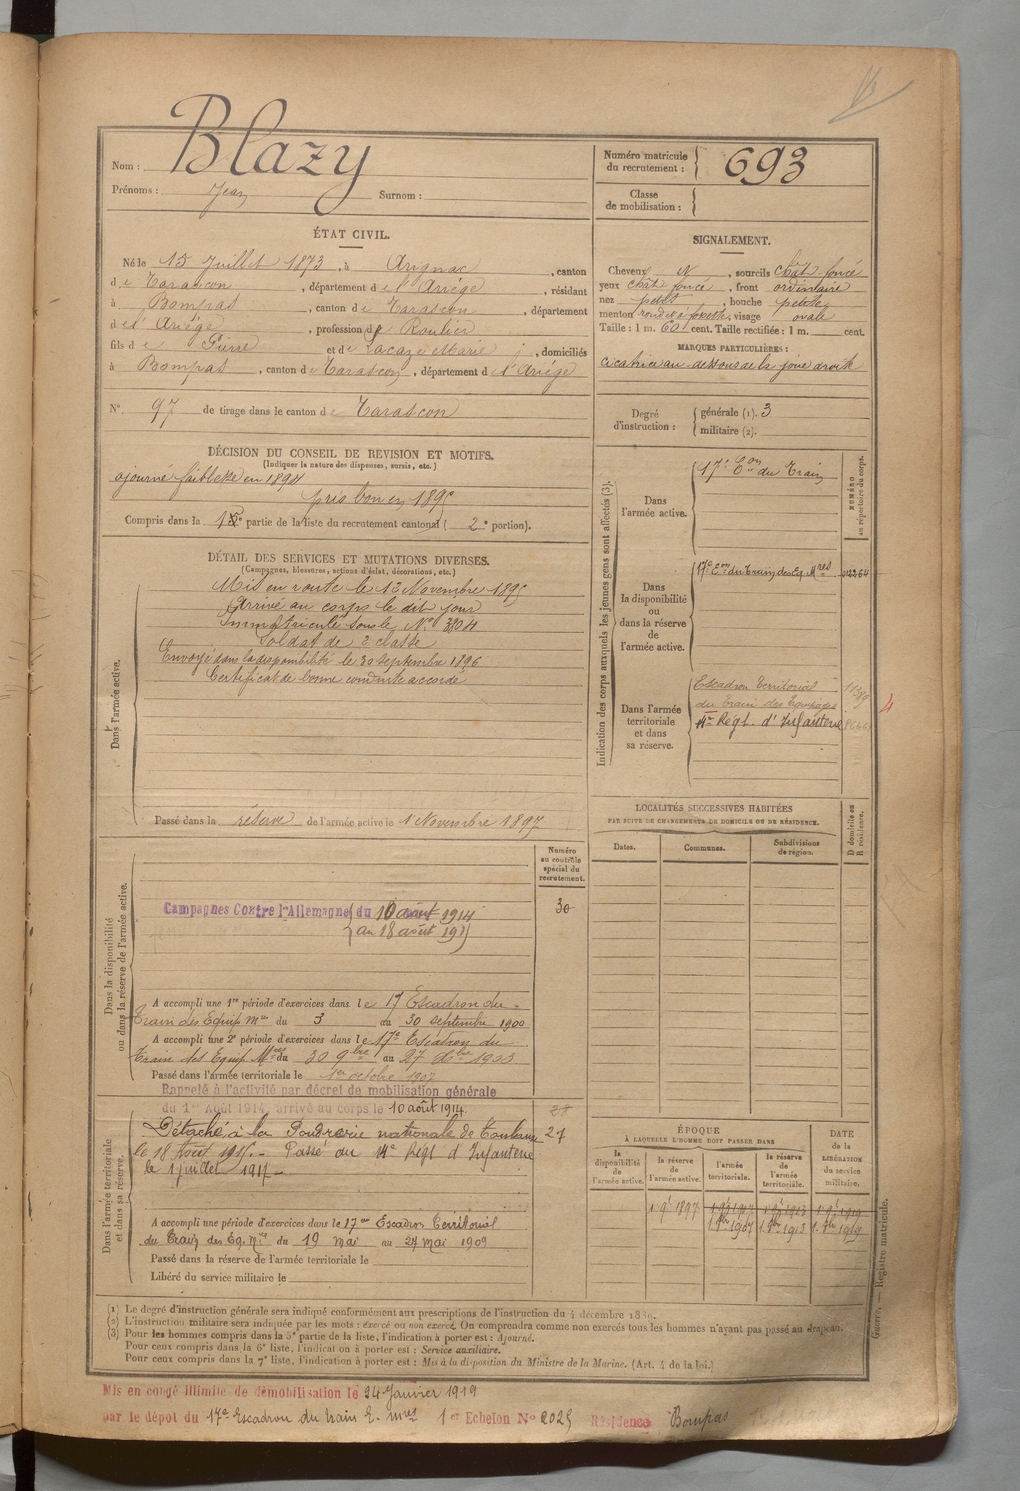 Nom : Blazy
Prénoms : Jean Surnom :
Numéro matricule du recrutement : 693
Classe de mobilisation :
ÉTAT CIVIL.
Né le 15 Juillet 1873, à Arignac, canton
de Tarascon, département de l'Ariège, résidant
à Bompas, canton de Tarascon, département
de l'Ariège, profession de Roulier
fils de Pierre et de Lacaze Marie, domiciliés
à Bompas, canton de Tarascon, département de l'Ariège
N° 97 de tirage dans le canton de Tarascon
SIGNALEMENT.
Cheveux N, sourcils chât. foncé
yeux chât foncé, front ordinaire
nez petit, bouche petite
menton rond à fossette, visage ovale
Taille : 1 m. 60 cent. Taille rectifiée : 1 m. cent.
MARQUES PARTICULIÈRES :
cicatrice au-dessous de la joue droite
Degré d'instruction : générale (1). 3
militaire (2).
DÉCISION DU CONSEIL DE REVISION ET MOTIFS.
(Indiquer la nature des dispenses, sursis, etc.)
ajourné faiblesse en 1894
pris bon en 1895
Compris dans la partie de la liste du recrutement cantonal ( 2e portion).
DÉTAIL DES SERVICES ET MUTATIONS DIVERSES.
(Campagnes, blessures, actions d'éclat, décorations, etc.)
Dans l'armée active.
Mis en route le 13 Novembre 1895
Arrivé au corps le dit jour
Immatriculé sous le N°
Soldat de 2e classe
Envoyé dans la disponibilité le 30 septembre 1896
Certificat de bonne conduite accordé
Passé dans la réserve de l'armée active le 1 Novembre 1897
Indication des corps auxquels les jeunes gens sont affectés (3).
NUMÉRO au répertoire du corps.
Dans l'armée active.
17e Eon du Train
Dans la disponibilité ou dans la réserve de l'armée active.
17e Eon du Train des Eq. Mres
Dans l'armée territoriale et dans sa réserve.
Escadron Territorial
du Train des Equipages
14e Régt. d'Infanterie
LOCALITÉS SUCCESSIVES HABITÉES
PAR SUITE DE CHANGEMENTS DE DOMICILE OU DE RÉSIDENCE.
Dates. Communes. Subdivisions de région. D domicile ou R résidence.
Dans la disponibilité ou dans la réserve de l'armée active.
Numéro au contrôle spécial du recrutement.
30
Campagnes Contre l'Allemagne du 10 août 1914
au 18 août 1915
A accompli une 1re période d'exercices dans le 17 Escadron du
Train des Equip mres du 3 au 30 septembre 1900
A accompli une 2e période d'exercices dans le 17e Escadron du
Train des Equip Mres du 30 9bre au 27 Xbre 1903
Passé dans l'armée territoriale le 1er octobre 1907
Rappelé à l'activité par décret de mobilisation générale
du 1er Août 1914, arrivé au corps le 10 août 1914.
28
Dans l'armée territoriale et dans sa réserve.
Détaché à la Poudrerie nationale de Toulouse 27
le 18 Août 1915. - Passé au 14e Régt d'Infanterie
le 1 juillet 1917 -
A accompli une période d'exercices dans le 17me Escadron Territorial
du Train des Eq. mres du 19 mai au 27 mai 1909
Passé dans la réserve de l'armée territoriale le
Libéré du service militaire le
ÉPOQUE
À LAQUELLE L'HOMME DOIT PASSER DANS
DATE de la LIBÉRATION du service militaire.
la disponibilité de l'armée active. la réserve de l'armée active. l'armée territoriale. la réserve de l'armée territoriale.
1 9e 1897
1. 8bre 1907 1. 8bre 1913 1. 8bre 1919
Guerre. — Registre matricule.
(1) Le degré d'instruction générale sera indiqué conformément aux prescriptions de l'instruction du 4 décembre 1889.
(2) L'instruction militaire sera indiquée par les mots : exercé ou non exercé. On comprendra comme non exercés tous les hommes n'ayant pas passé au drapeau.
(3) Pour les hommes compris dans la 5e partie de la liste, l'indication à porter est : Ajourné.
Pour ceux compris dans la 6e liste, l'indication à porter est : Service auxiliaire.
Pour ceux compris dans la 7e liste, l'indication à porter est : Mis à la disposition du Ministre de la Marine. (Art. 4 de la loi.)
Mis en congé illimité de démobilisation le 24 Janvier 1919
par le dépôt du 17e Escadron du train E. mres 1er Echelon N° 2025 Résidence Bompas